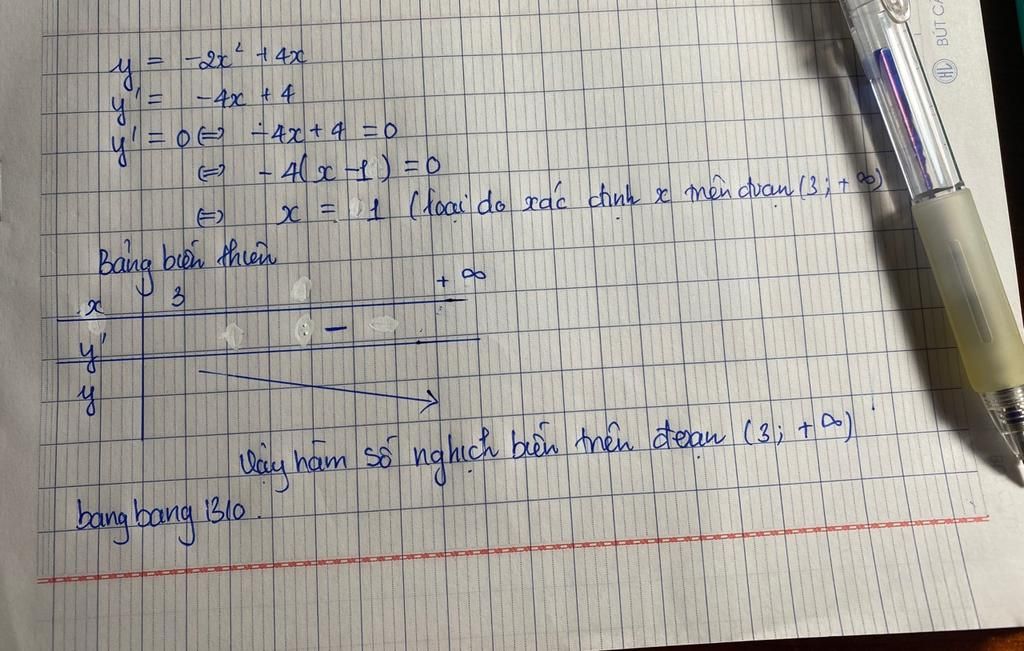 y = -2x² + 4x
y' = -4x + 4
y' = 0 ⇔ -4x + 4 = 0
⇔ -4(x - 1) = 0
⇔ x = 1 (loại do xác định x trên đoạn (3; +∞)
Bảng biến thiên
x 3 +∞
y' -
y
Vậy hàm số nghịch biến trên đoạn (3; +∞)
bangbang 1310.
BÚT